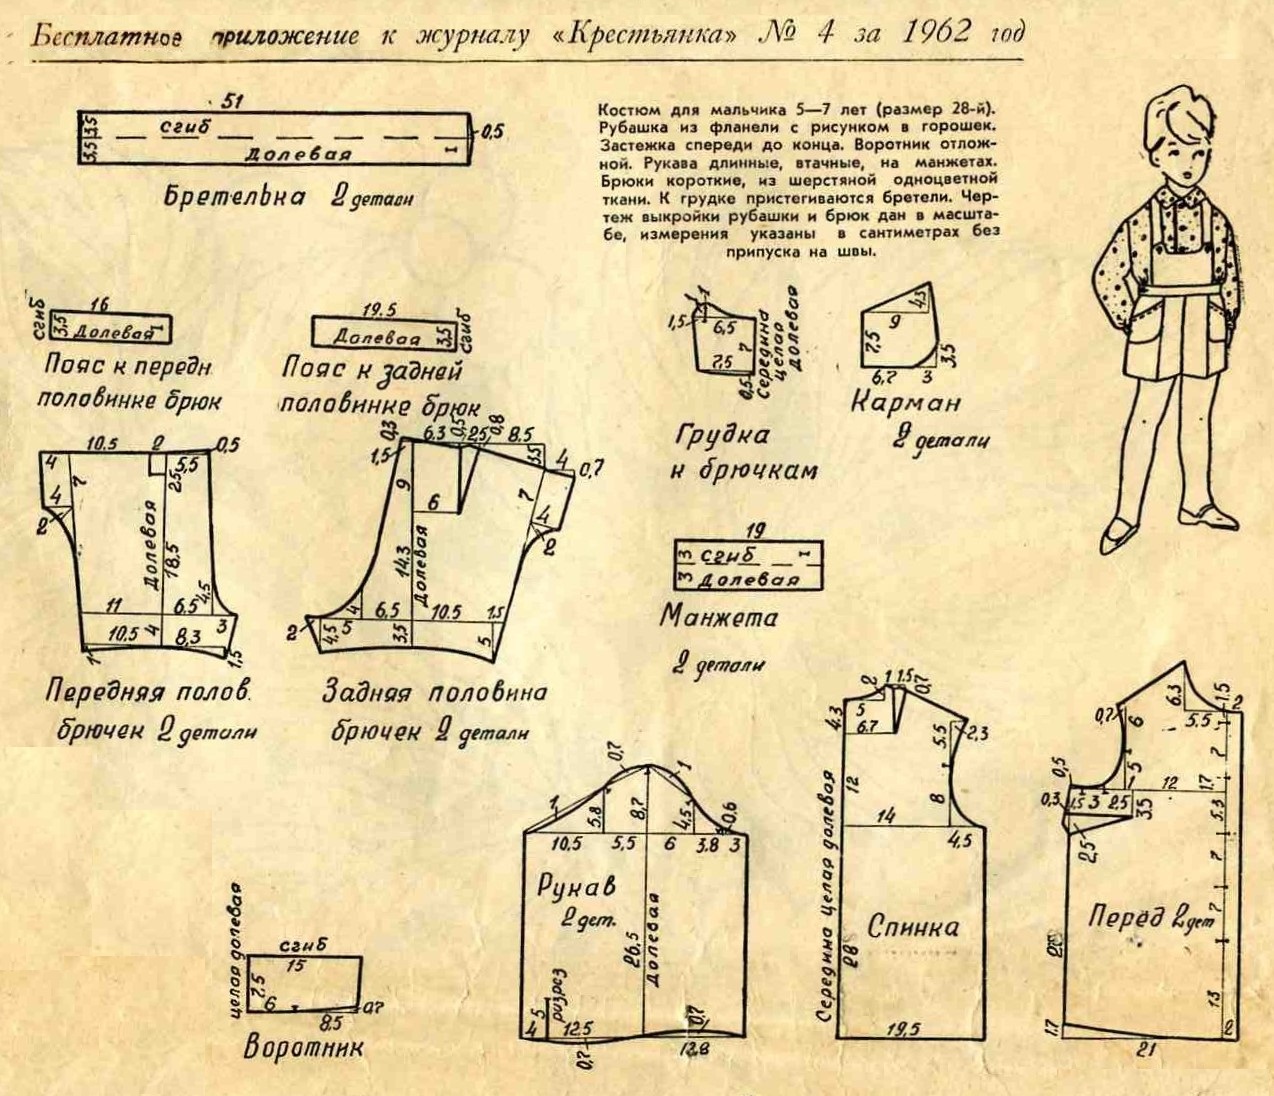 Бесплатное приложение к журналу «Крестьянка» № 4 за 1962 год
51
3,5
3,5
сгиб
долевая
0,5
Бретелька 2 детали
Костюм для мальчика 5—7 лет (размер 28-й).
Рубашка из фланели с рисунком в горошек.
Застежка спереди до конца. Воротник отлож-
ной. Рукава длинные, втачные, на манжетах.
Брюки короткие, из шерстяной одноцветной
ткани. К грудке пристегиваются бретели. Чер-
теж выкройки рубашки и брюк дан в масшта-
бе, измерения указаны в сантиметрах без
припуска на швы.
16
сгиб
3,5
Долевая
Пояс к передн
половинке брюк
19.5
Долевая
3,5
сгиб
Пояс к задней
половинке брюк
1
1,5
6,5
7
7,5
0,5
Середина
целая
долевая
Грудка
к брючкам
4,3
9
7,5
3,5
6,7
3
Карман
2 детали
10.5
2
0,5
4
7
5,5
25
4
2
Долевая
18.5
4,5
11
6.5
3
10.5
4
8,3
1
1,5
Передняя полов.
брючек 2 детали
0,3
6.3
0,5
2,5
0,8
8.5
1,5
3,5
4
0,7
9
7
6
4
2
14.3
Долевая
4
6.5
10.5
1,5
2
4,5
5
3.5
5
Задняя половина
брючек 2 детали
19
3
сгиб
3
Долевая
Манжета
2 детали
0,7
1
1
5.8
8,7
4,5
0,6
10,5
5,5
6
3.8
3
Рукав
2 дет.
26,5
долевая
разрез
5
4
12.5
0,7
0,7
13,8
2
1
1.5
0,7
4.3
5
6.7
5.5
2,3
12
8
14
4,5
Середина целая долевая
28
Спинка
19,5
6.3
1.5
2
5.5
0,7
6
7
5
0,5
1
12
1.7
0,3
1.5
3
2.5
3.5
5.3
2,5
7
7
Перед 2 дет
28
13
1.7
2
21
целая долевая
сгиб
15
7.5
6
0,7
8.5
Воротник